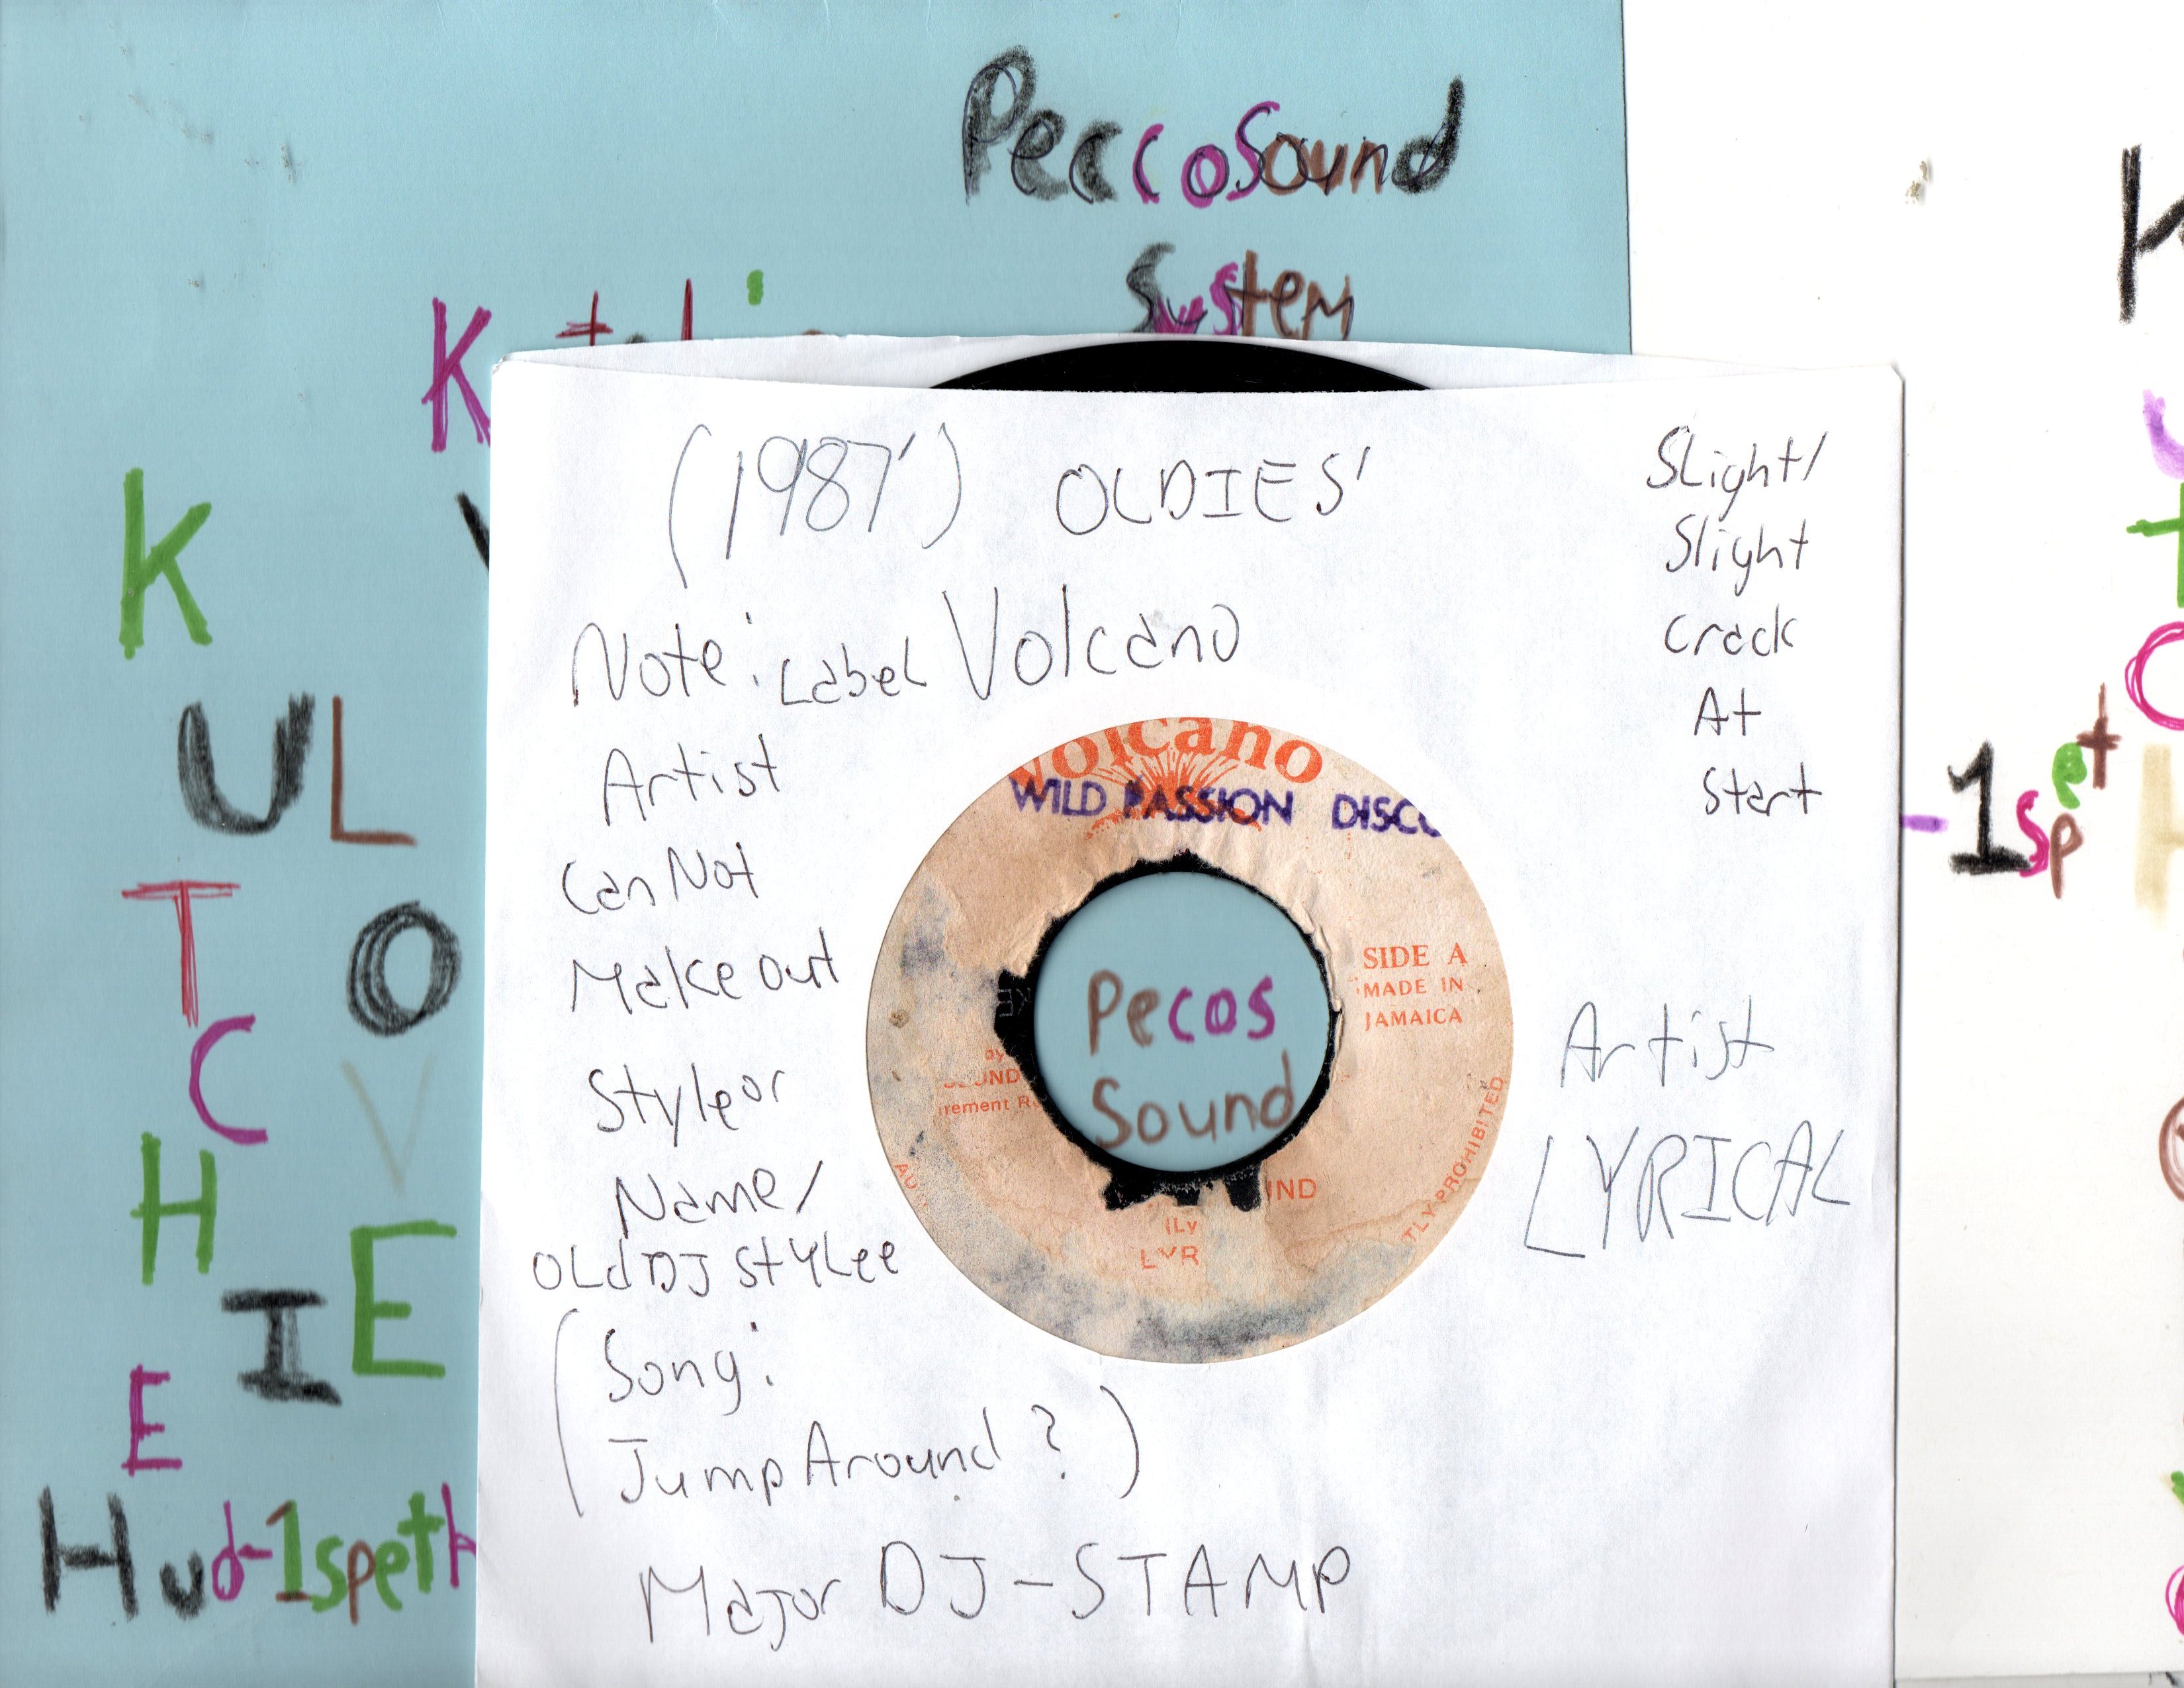 PeccoSound
System
K
K
UL
T
O
C
V
H
E
I
E
Hud-1speth
(1987') OLDIES'
Note: Label Volcano
Artist
Can Not
Make out
Style or
Name/
OLd DJ stYLee
(Song:
Jump Around?)
Major DJ-STAMP
SLight/
Slight
crack
At
Start
Artist
LYRICAL
Volcano
WILD PASSION DISCO
SIDE A
MADE IN
JAMAICA
by
irement
IND
LYR
TLY PROHIBITED
Pecos
Sound
-1spet
K